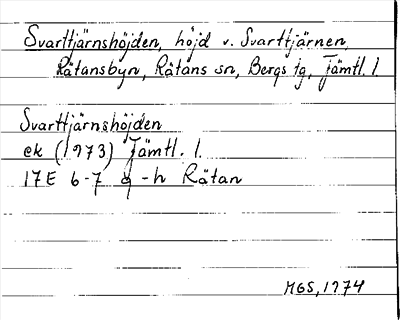 Svarttjärnshöjden, höjd v. Svarttjärnen,
Rätansbyn, Rätans sn, Bergs tg, Jämtl. l.
Svarttjärnshöjden
ek (1973) Jämtl. l.
17E 6-7 g-h Rätan
MGS, 1974